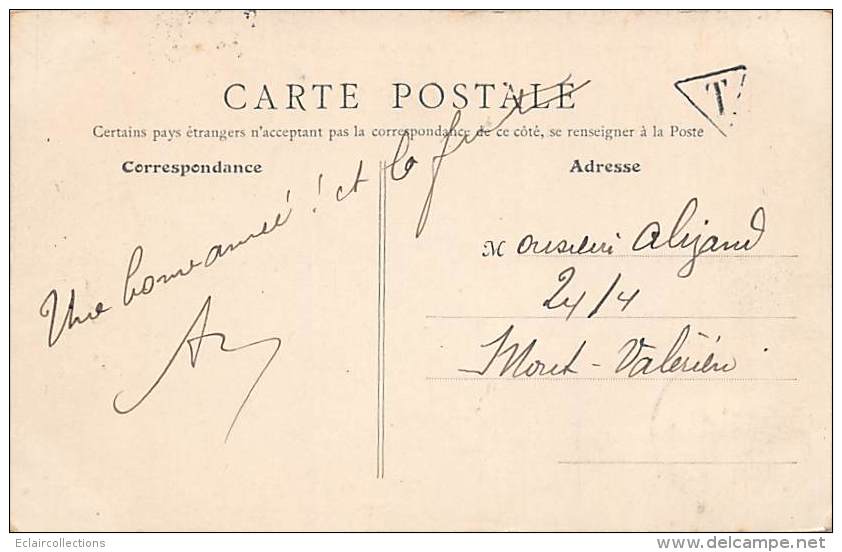 CARTE POSTALE
T
Certains pays étrangers n'acceptant pas la correspondance de ce côté, se renseigner à la Poste
Correspondance
Une bonne année ! et la
Adresse
Monsieur Aligand
24/4
Mont-Valérien
Eclaircollections
delcampe.net